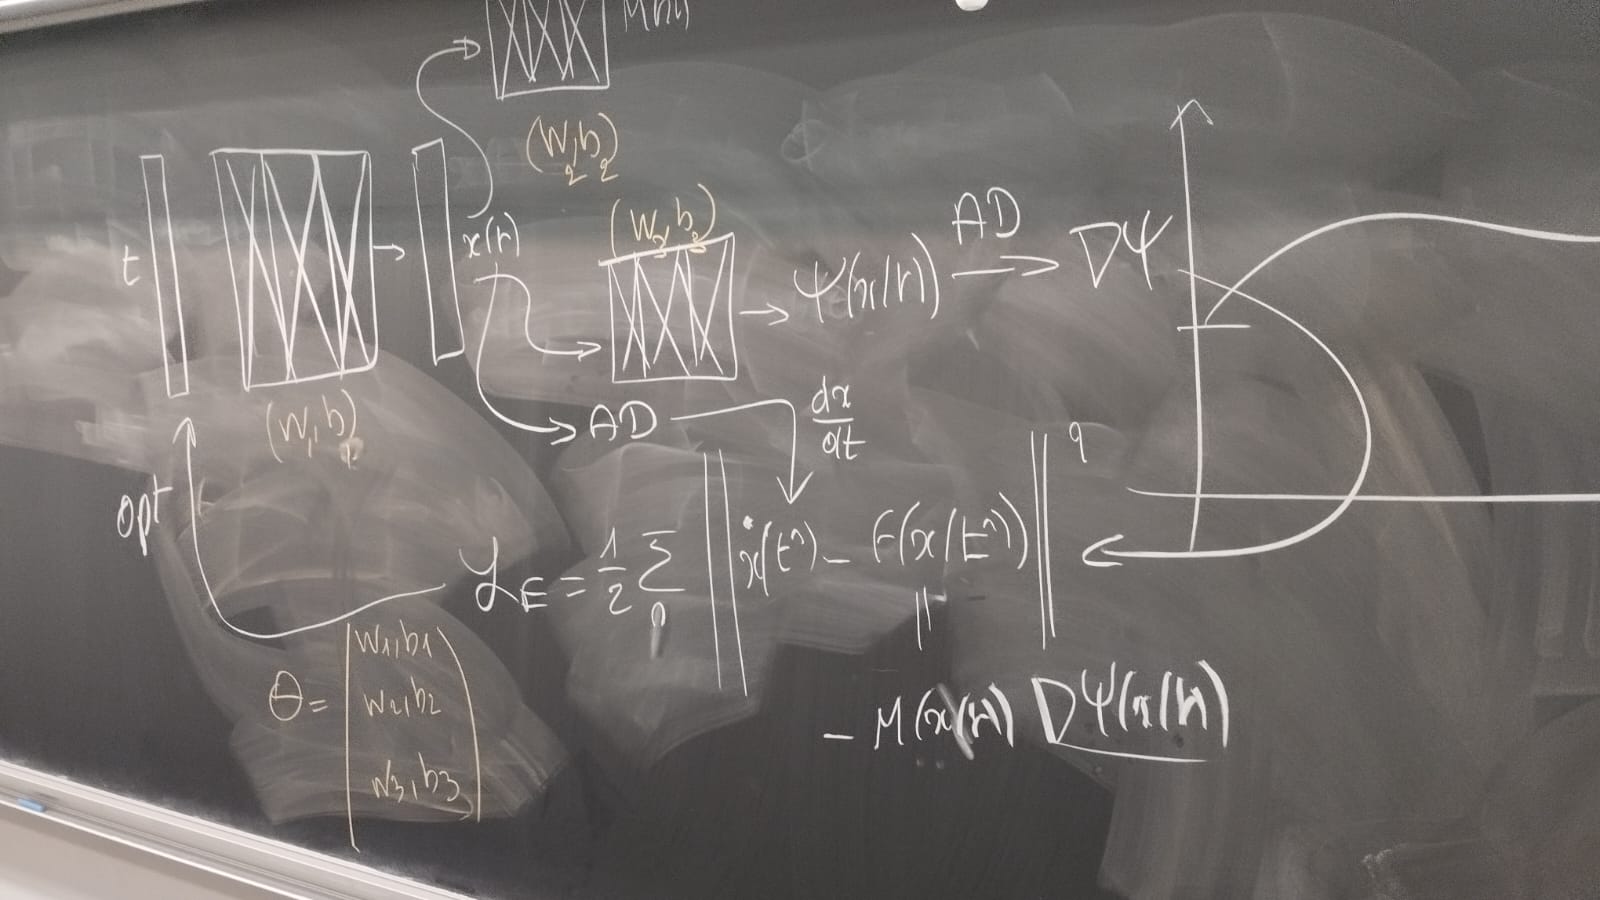 (W₂,b₂)
t
x(t)
(W₃,b₃)
→ Ψ(x(t)) AD → ∇Ψ
(W₁,b₁)
AD
dx/dt
opt
ℒ_E = 1/2 Σ_n || ẋ(tⁿ) - F(x(tⁿ)) ||²
||
- M(x(t)) ∇Ψ(x(t))
θ =
W₁,b₁
W₂,b₂
W₃,b₃